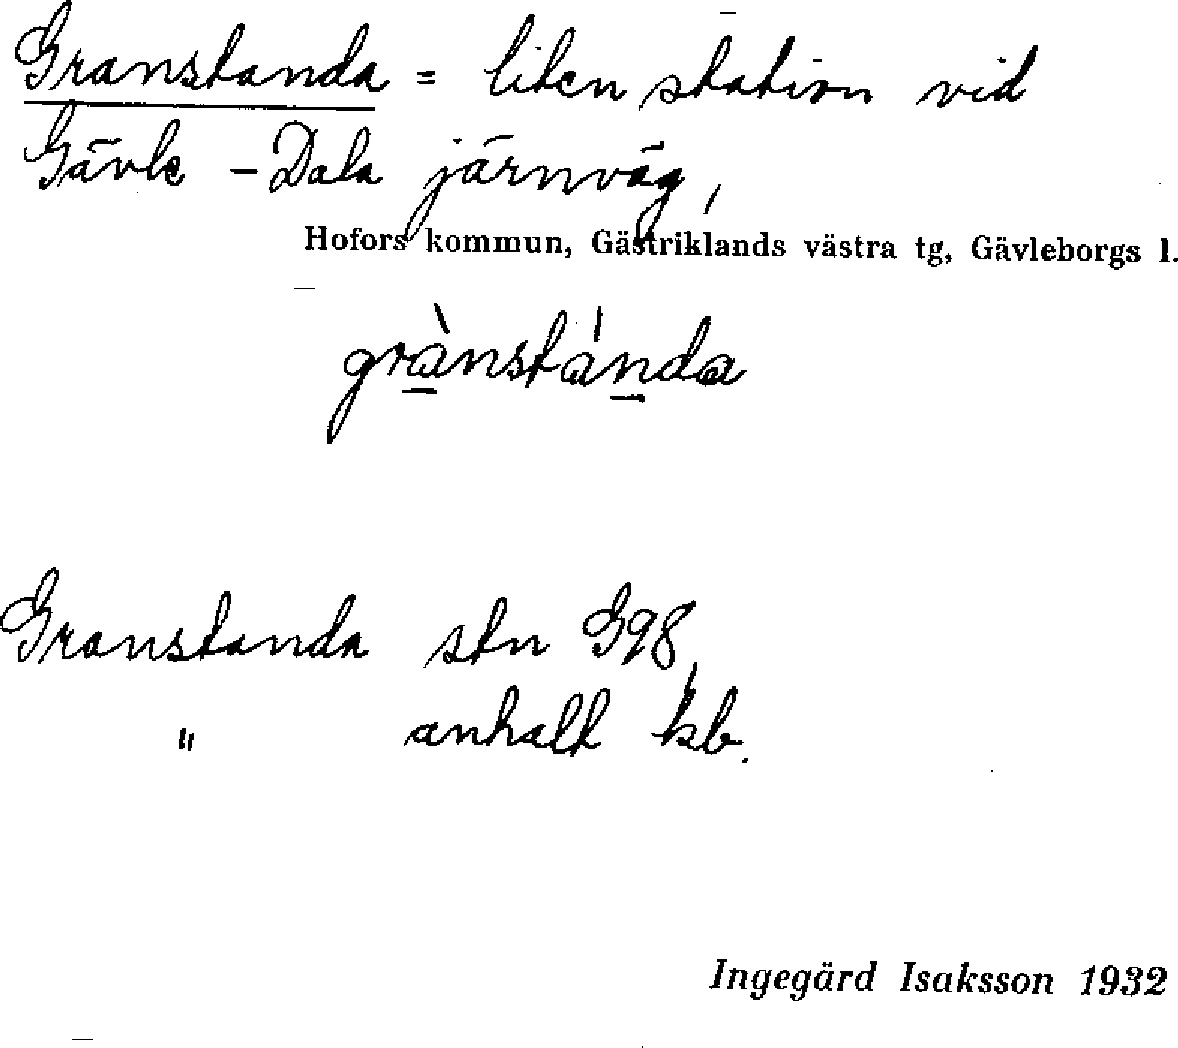 Granstanda = liten station vid
Gävle - Dala järnväg,
Hofors kommun, Gästriklands västra tg, Gävleborgs l.
grànstánda
Granstanda stn G98,
" anhalt kb.
Ingegärd Isaksson 1932